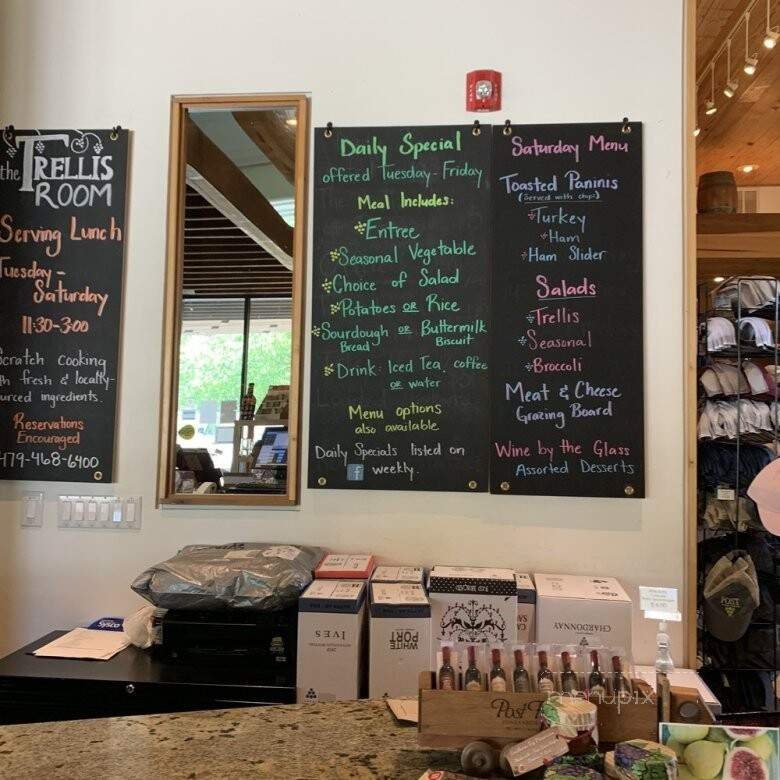 the TRELLIS
ROOM
Serving Lunch
Tuesday -
Saturday
11:30-3:00
Scratch cooking
fresh & locally-
ingredients.
Reservations
Encouraged
479-468-6400
Daily Special
offered Tuesday - Friday
Meal Includes:
Entree
Seasonal Vegetable
Choice of Salad
Potatoes OR Rice
Sourdough OR Buttermilk
Bread Biscuit
Drink: Iced Tea, coffee
OR water
Menu options
also available
Daily Specials listed on
f weekly.
Saturday Menu
Toasted Paninis
(Served with chips)
Turkey
Ham
Ham Slider
Salads
Trellis
Seasonal
Broccoli
Meat & Cheese
Grazing Board
Wine by the Glass
Assorted Desserts
IVES
WHITE
PORT
CHARDONNAY
POST
Post
menupix